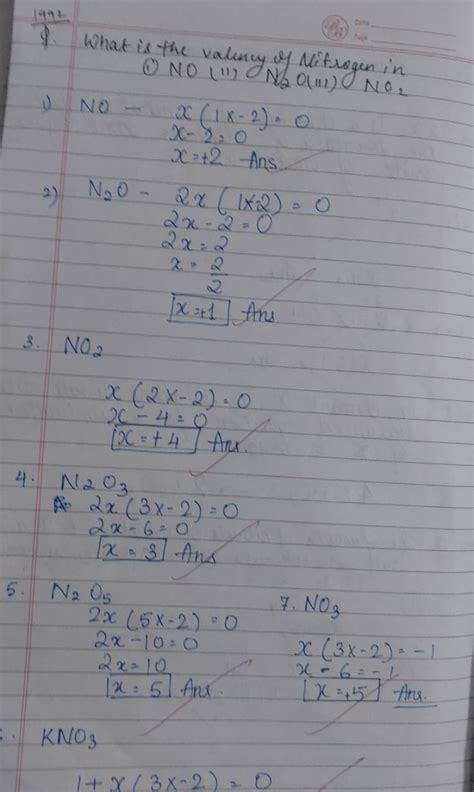 1992
Date
Page
Q. What is the valency of Nitrogen in
① NO (ii) N2O (iii) NO2
1) NO — x(1x-2) = 0
x - 2 = 0
x = +2 Ans
2) N2O - 2x (1x-2) = 0
2x - 2 = 0
2x = 2
x = 2/2
x = +1 Ans
3. NO2
x(2x-2) = 0
x - 4 = 0
x = +4 Ans.
4. N2O3
2x(3x-2) = 0
2x - 6 = 0
x = 3 Ans
5. N2O5
2x(5x-2) = 0
2x - 10 = 0
2x = 10
x = 5 Ans.
7. NO3
x(3x-2) = -1
x - 6 = -1
x = +5 Ans.
KNO3
1 + x(3x-2) = 0